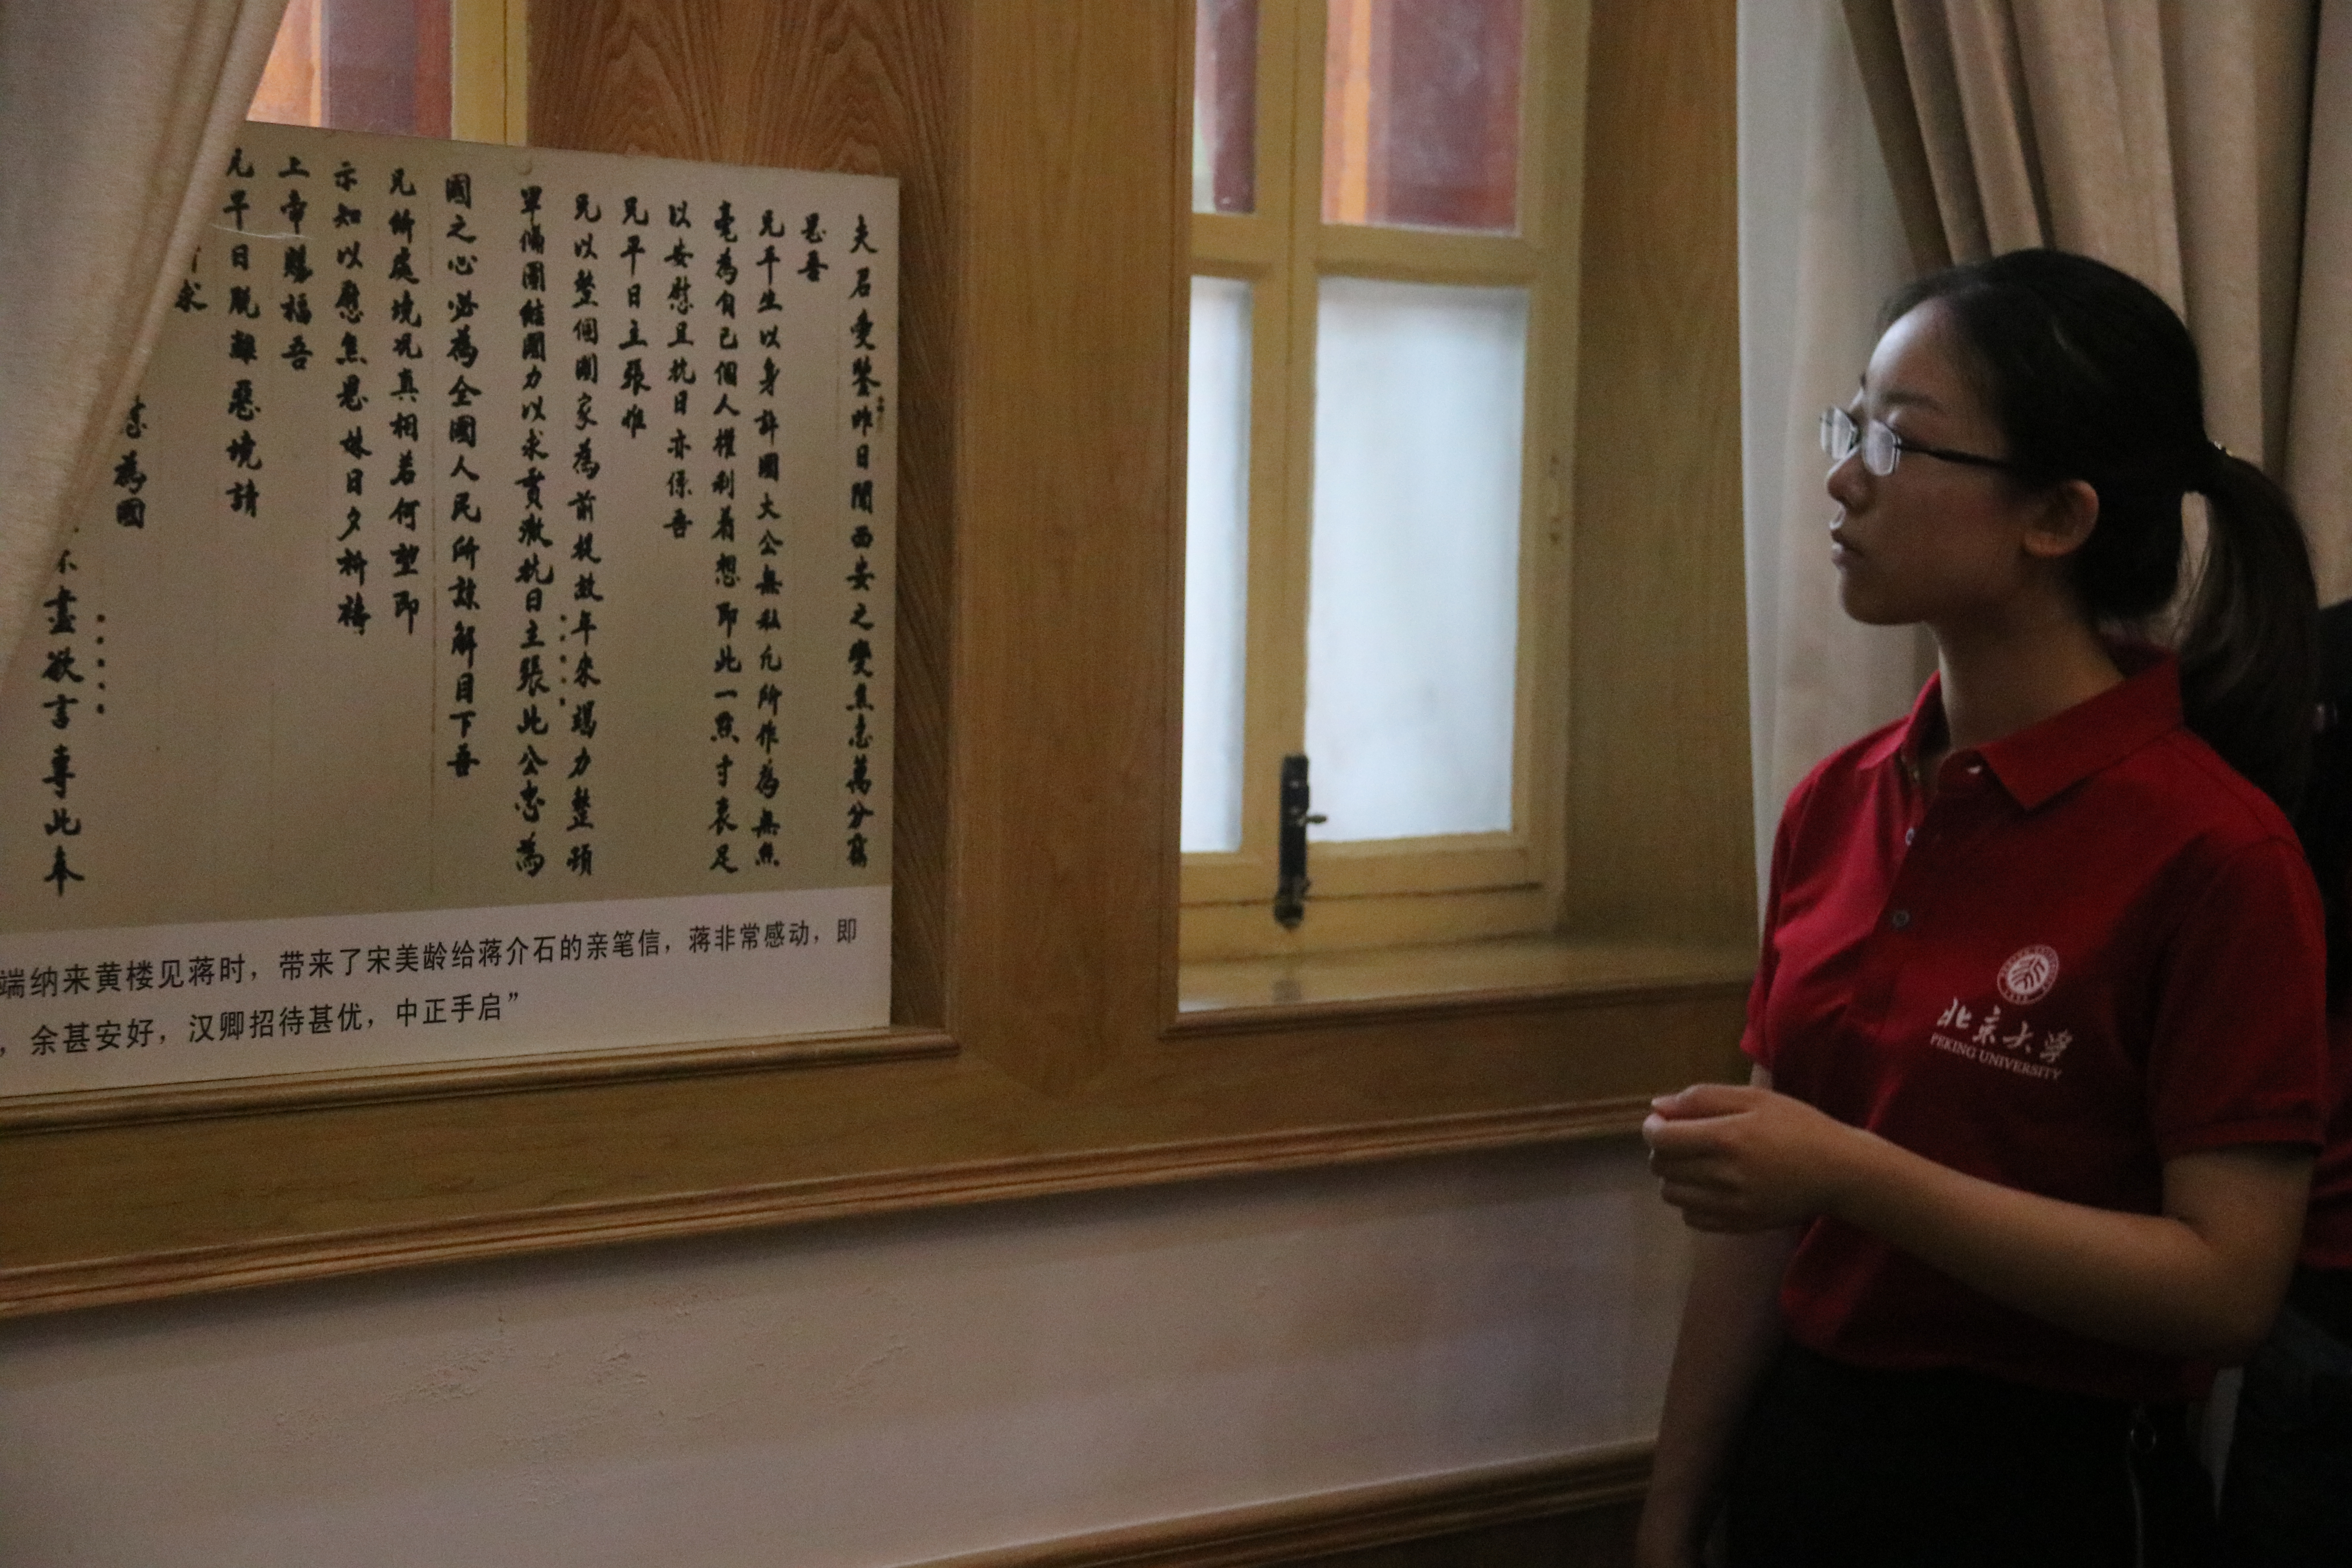 夫君愛鑒昨日聞西安之變焦急萬分竊
思吾
兄平生以身許國大公無私凡所作為無絲
毫為自己個人權利着想即此一點寸衷足
以安慰且抗日亦係吾
兄平日主張惟
兄以整個國家為前提故年來竭力整頓
軍備團結國力以求貫徹抗日主張此公忠為
國之心必為全國人民所諒解目下吾
兄所處境況真相若何望即
示知以慰焦思妹日夕祈禱
上帝賜福吾
兄早日脫離惡境請
求
為國
盡欲言專此奉
端纳来黄楼见蒋时，带来了宋美龄给蒋介石的亲笔信，蒋非常感动，即
，余甚安好，汉卿招待甚优，中正手启”
北京大学
PEKING UNIVERSITY